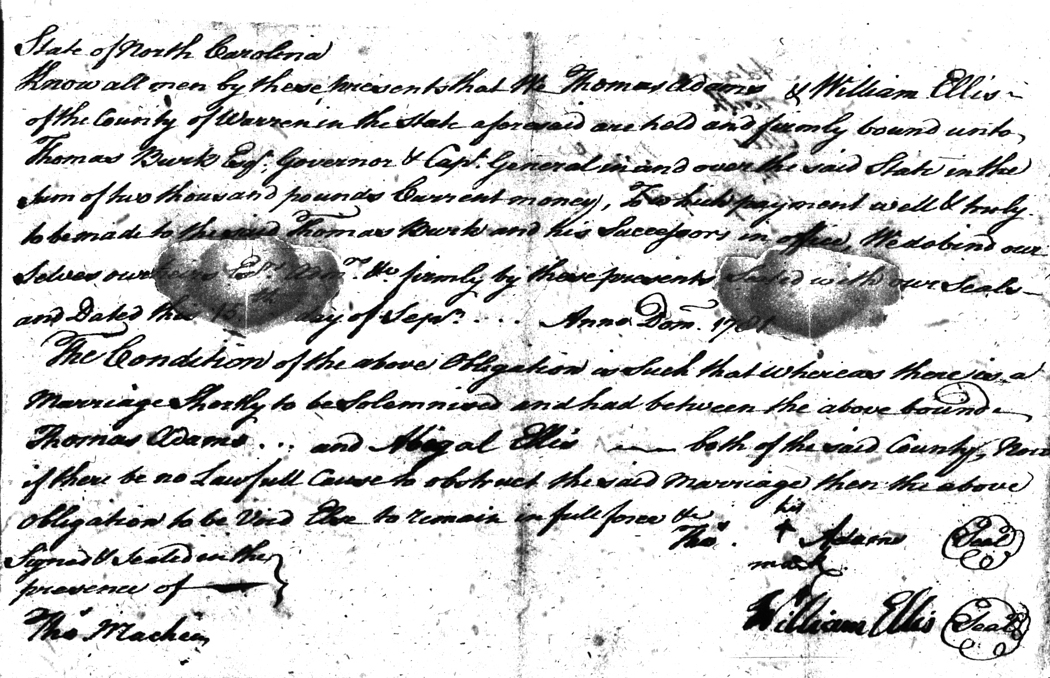 State of North Carolina
Know all men by these presents that We Thomas Adams & William Ellis
of the County of Warren in the State aforesaid are held and firmly bound unto
Thomas Burk Esqr. Governor & Capt. General in and over the said State in the
Sum of two thousand pounds Current money, To which payment well & truly
to be made to the said Thomas Burk and his Successors in office, We do bind our
Selves our heirs Exrs Admrs. &c firmly by these presents Sealed with our Seals
and Dated this 15th day of Septr. .... Anno Dom. 1781
The Condition of the above Obligation is Such that whereas there is a
Marriage Shortly to be Solemnised and had between the above bound
Thomas Adams ... and Abigal Ellis — both of the said County, Now
if there be no Lawfull Cause to obstruct the said Marriage then the above
obligation to be Void Else to remain in full force &c
his
Thos. + Adams Seal
mark
Signed & Sealed in the
presence of
William Ellis Seal
Thos. Machen